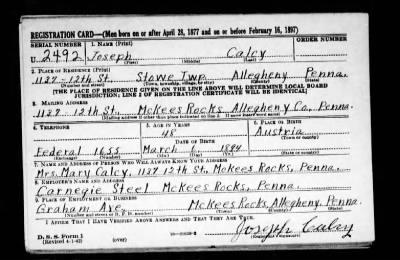 REGISTRATION CARD—(Men born on or after April 28, 1877 and on or before February 16, 1897)
SERIAL NUMBER 1. NAME (Print) ORDER NUMBER
U 2492 Joseph Calcy
(First) (Middle) (Last)
2. PLACE OF RESIDENCE (Print)
1127-12th St. Stowe Twp. Allegheny Penna.
(Number and street) (Town, township, village, or city) (County) (State)
[THE PLACE OF RESIDENCE GIVEN ON THE LINE ABOVE WILL DETERMINE LOCAL BOARD
JURISDICTION; LINE 2 OF REGISTRATION CERTIFICATE WILL BE IDENTICAL]
3. MAILING ADDRESS
1127 12th St. McKees Rocks Allegheny Co., Penna.
[Mailing address if other than place indicated on line 2. If same insert word same]
4. TELEPHONE 5. AGE IN YEARS 6. PLACE OF BIRTH
48 Austria
DATE OF BIRTH (Town or county)
Federal 1655 March 6 1894
(Exchange) (Number) (Mo.) (Day) (Yr.) (State or country)
7. NAME AND ADDRESS OF PERSON WHO WILL ALWAYS KNOW YOUR ADDRESS
Mrs. Mary Calcy, 1127 12th St., McKees Rocks, Penna.
8. EMPLOYER'S NAME AND ADDRESS
Carnegie Steel McKees Rocks, Penna.
9. PLACE OF EMPLOYMENT OR BUSINESS
Graham Ave. McKees Rocks, Allegheny. Penna.
(Number and street or R. F. D. number) (Town) (County) (State)
I AFFIRM THAT I HAVE VERIFIED ABOVE ANSWERS AND THAT THEY ARE TRUE.
D. S. S. Form 1
(Revised 4-1-42) (over) Joseph Calcy
(Registrant's signature)